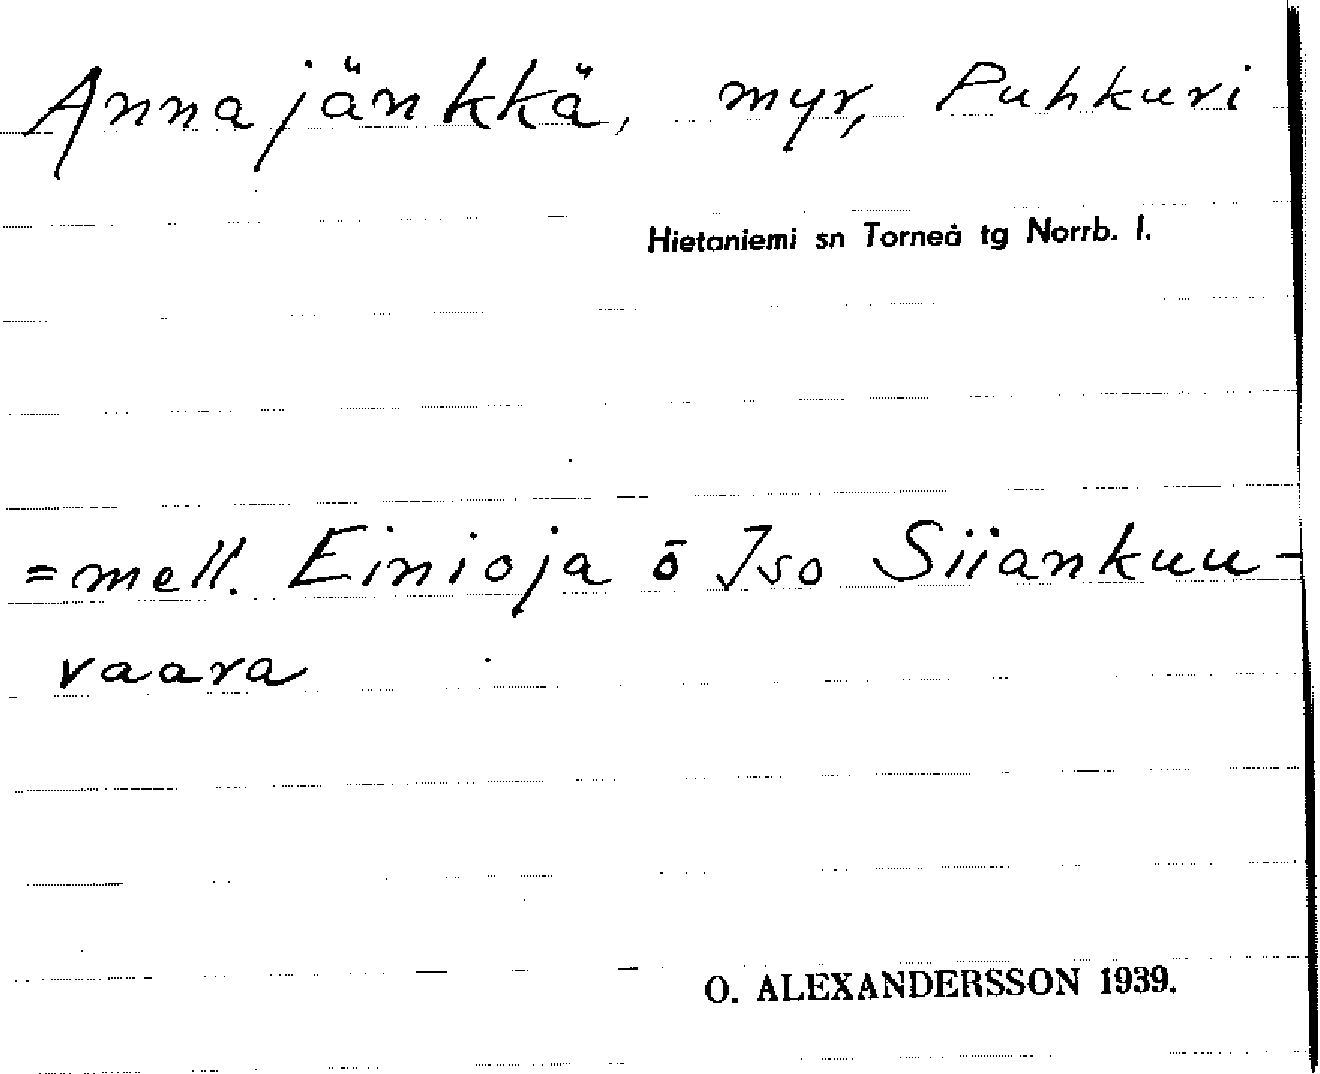 Annajänkkä, myr, Puhkuri
Hietaniemi sn Torneå tg Norrb. l.
=mell. Einioja ō Iso Siiankuu-
vaara
O. ALEXANDERSSON 1939.